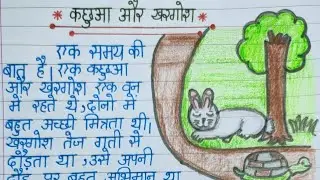 कछुआ और खरगोश
एक समय की
बात है। एक कछुआ
और खरगोश एक वन
में रहते थे। दोनों में
बहुत अच्छी मित्रता थी।
खरगोश तेज गती से
दौड़ता था। उसे अपनी
दौड़ पर बहुत अभिमान था